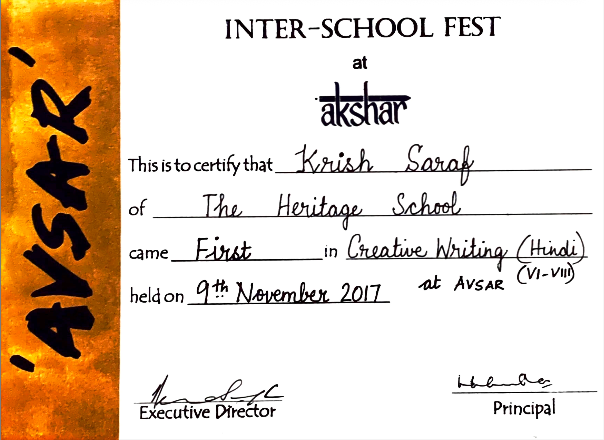 'AVSAR'
INTER-SCHOOL FEST
at
akshar
This is to certify that Krish Saraf
of The Heritage School
came First in Creative Writing (Hindi)
(VI-VIII)
held on 9th November 2017 at AVSAR
Executive Director
Principal